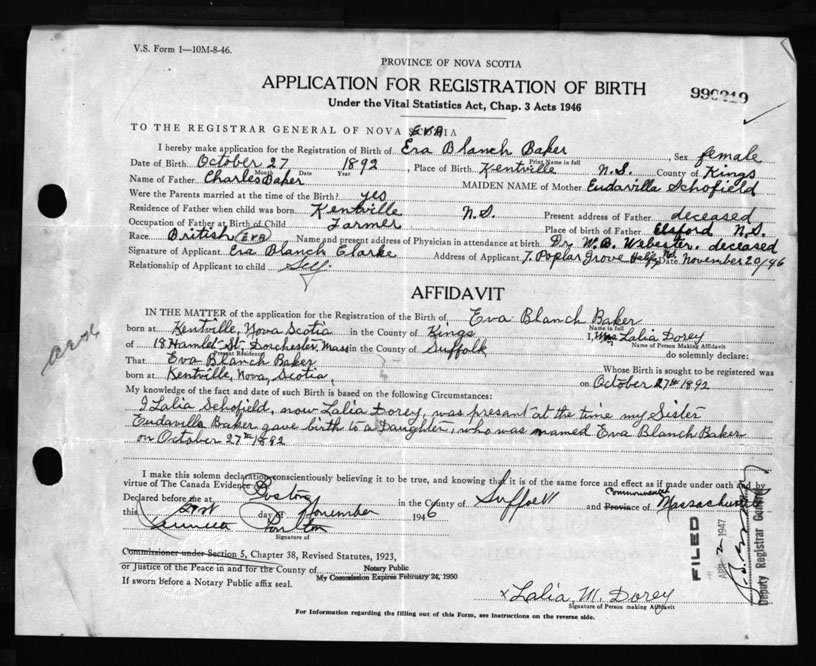 V.S. Form 1—10M-8-46.
PROVINCE OF NOVA SCOTIA
APPLICATION FOR REGISTRATION OF BIRTH
Under the Vital Statistics Act, Chap. 3 Acts 1946
TO THE REGISTRAR GENERAL OF NOVA SCOTIA
EVA
I hereby make application for the Registration of Birth of Era Blanch Baker, Sex female
Print Name in full
Date of Birth October 27 1892, Place of Birth Kentville N.S. County of Kings
Month Date Year
Name of Father Charles Baker MAIDEN NAME of Mother Eudavilla Schofield
Were the Parents married at the time of the Birth? yes
Residence of Father when child was born Kentville N.S. Present address of Father deceased
Occupation of Father at Birth of Child Farmer Place of birth of Father Elsford N.S.
Race British (EVA) Name and present address of Physician in attendance at birth Dr W.B. Webester. deceased
Signature of Applicant Era Blanch Clarke Address of Applicant 7. Poplar Grove Date November 20/46
Relationship of Applicant to child Self.
AFFIDAVIT
IN THE MATTER of the application for the Registration of the Birth of Eva Blanch Baker
Name in full
born at Kentville, Nova Scotia in the County of Kings I, Mrs Lalia Dorey
Name of Person Making Affidavit
of 18 Hamlet St. Dorchester, Mass in the County of Suffolk do solemnly declare:
Present Residence
That Eva Blanch Baker Whose Birth is sought to be registered was
born at Kentville, Nova, Scotia, on October 27th 1892
My knowledge of the fact and date of such Birth is based on the following Circumstances:
I Lalia Schofield, now Lalia Dorey, was present at the time my Sister
Eudavilla Baker gave birth to a Daughter, who was named Eva Blanch Baker
on October 27th 1892
I make this solemn declaration conscientiously believing it to be true, and knowing that it is of the same force and effect as if made under oath and by
virtue of The Canada Evidence
Declared before me at Boston in the County of Suffolk and Province of Massachusetts
Commonwealth
this day of November 1946
Signature of
Commissioner under Section 5, Chapter 38, Revised Statutes, 1923,
or Justice of the Peace in and for the County of Notary Public
My Commission Expires February 24, 1950
If sworn before a Notary Public affix seal.
x Lalia M. Dorey
Signature of Person making Affidavit
For Information regarding the filling out of this Form, see instructions on the reverse side.
FILED
2 1947
Deputy Registrar General